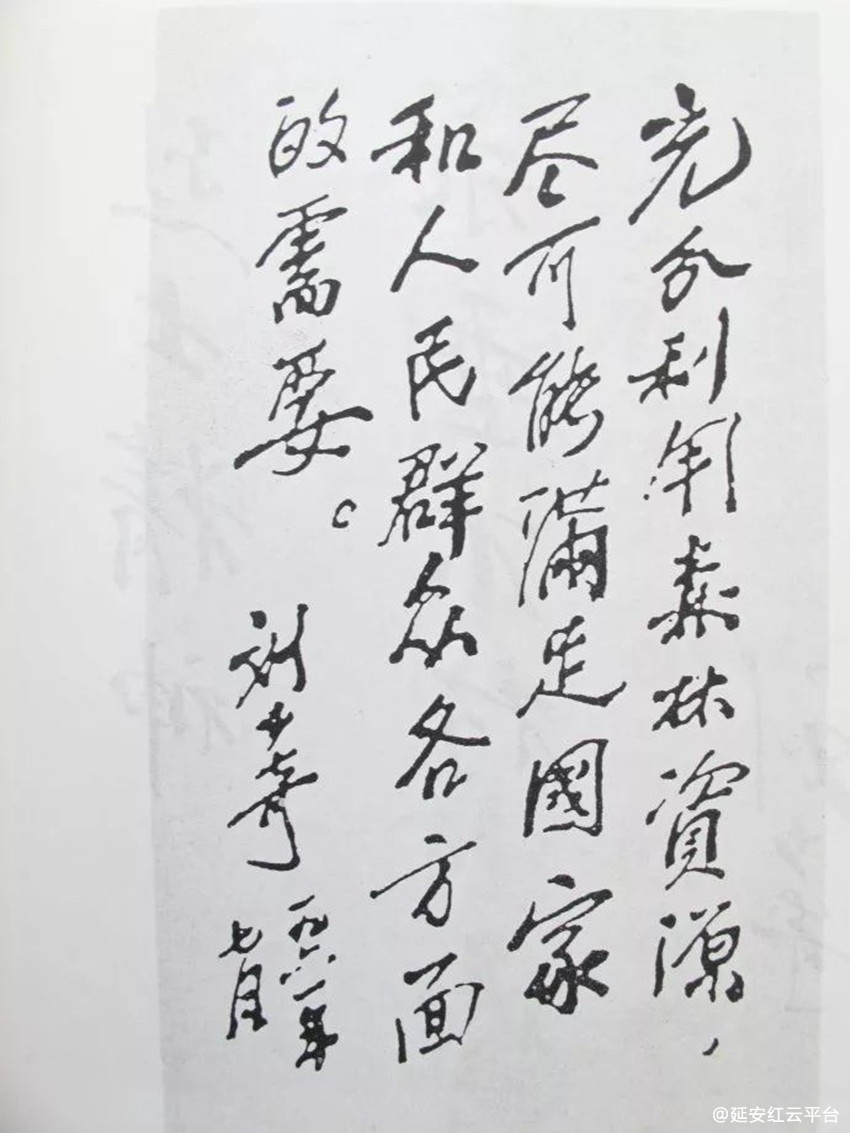 充分利用森林资源，
尽可能满足國家
和人民群众各方面
的需要。
刘少奇
一九六一年
七月
@延安红云平台